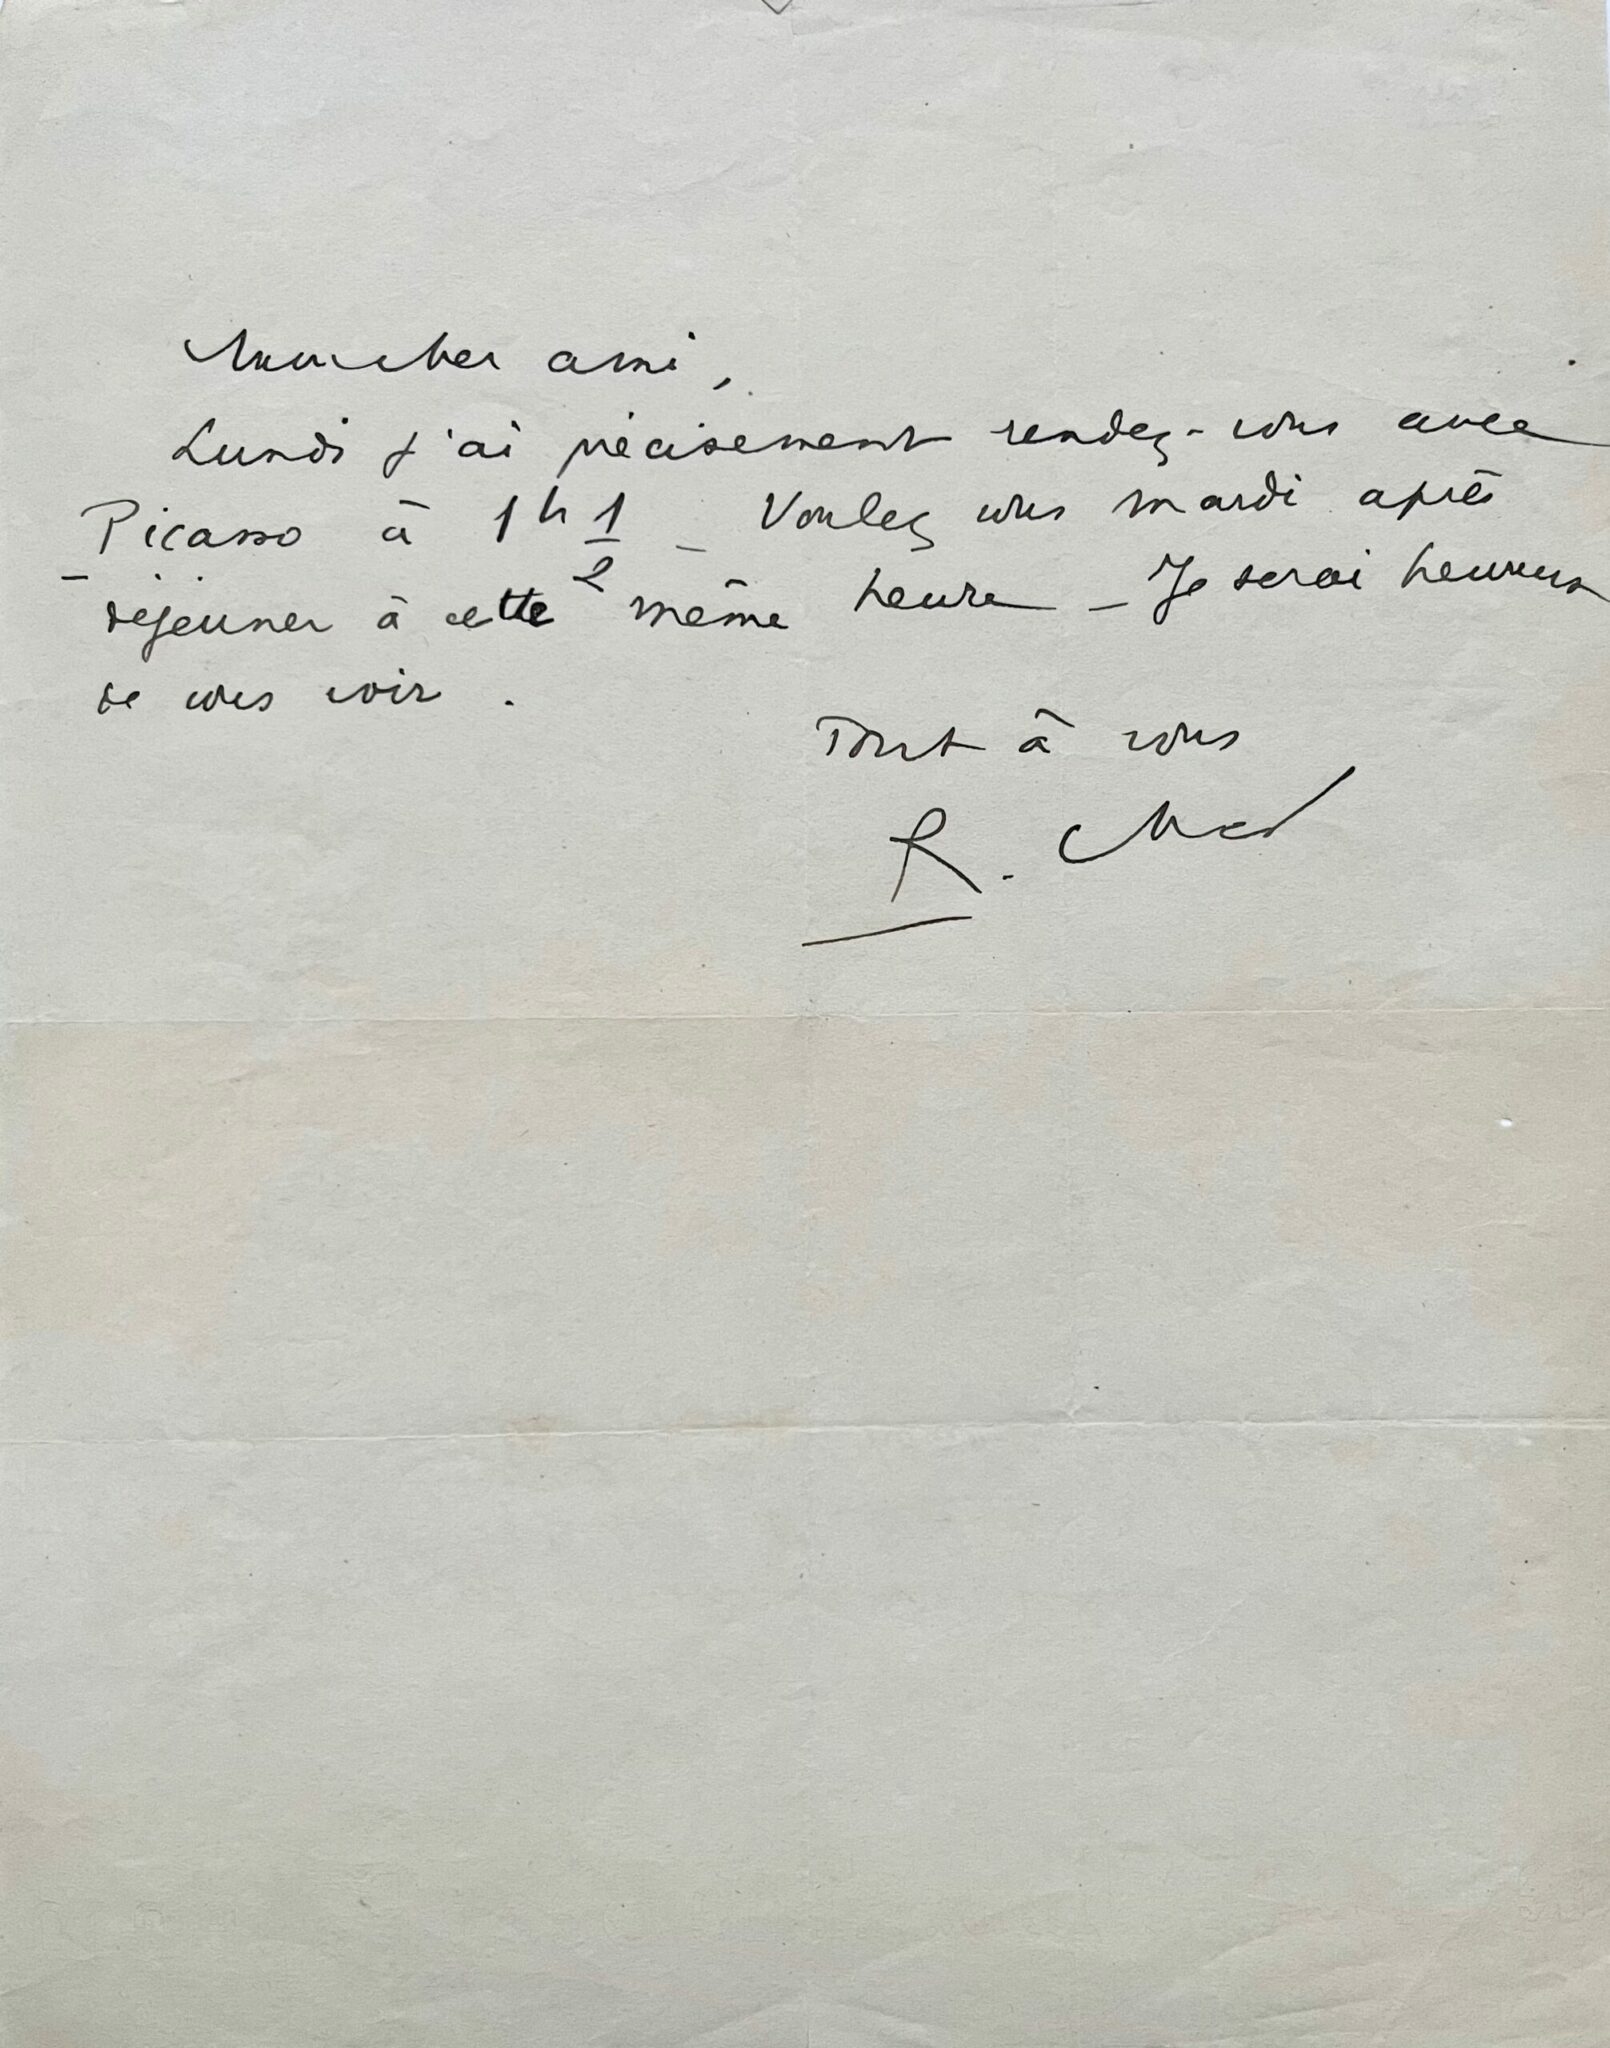 Mon cher ami,
Lundi j'ai précisement rendez-vous avec
Picasso à 1h 1/2 – Voulez vous mardi après
déjeuner à cette même heure – Je serai heureux
de vous voir.
Tout à vous
R.